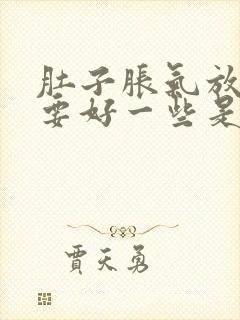 肚子脹氣放
要好一些是
賈天勇